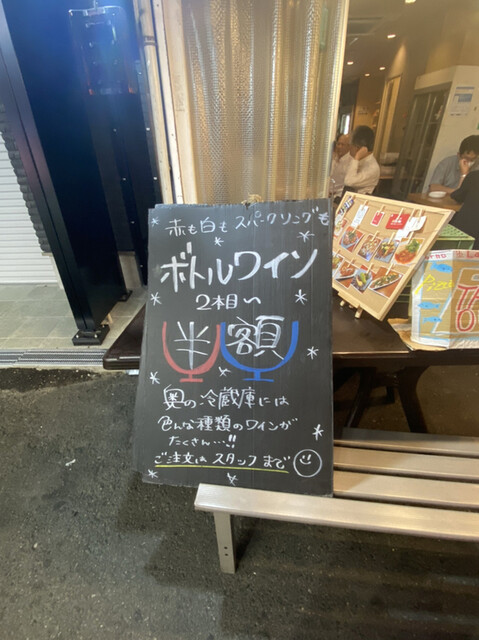 赤も白も スパークリングも
ボトルワイン
2本目〜
半額
奥の冷蔵庫には
色んな種類のワインが
たくさん…!!
ご注文は スタッフ まで